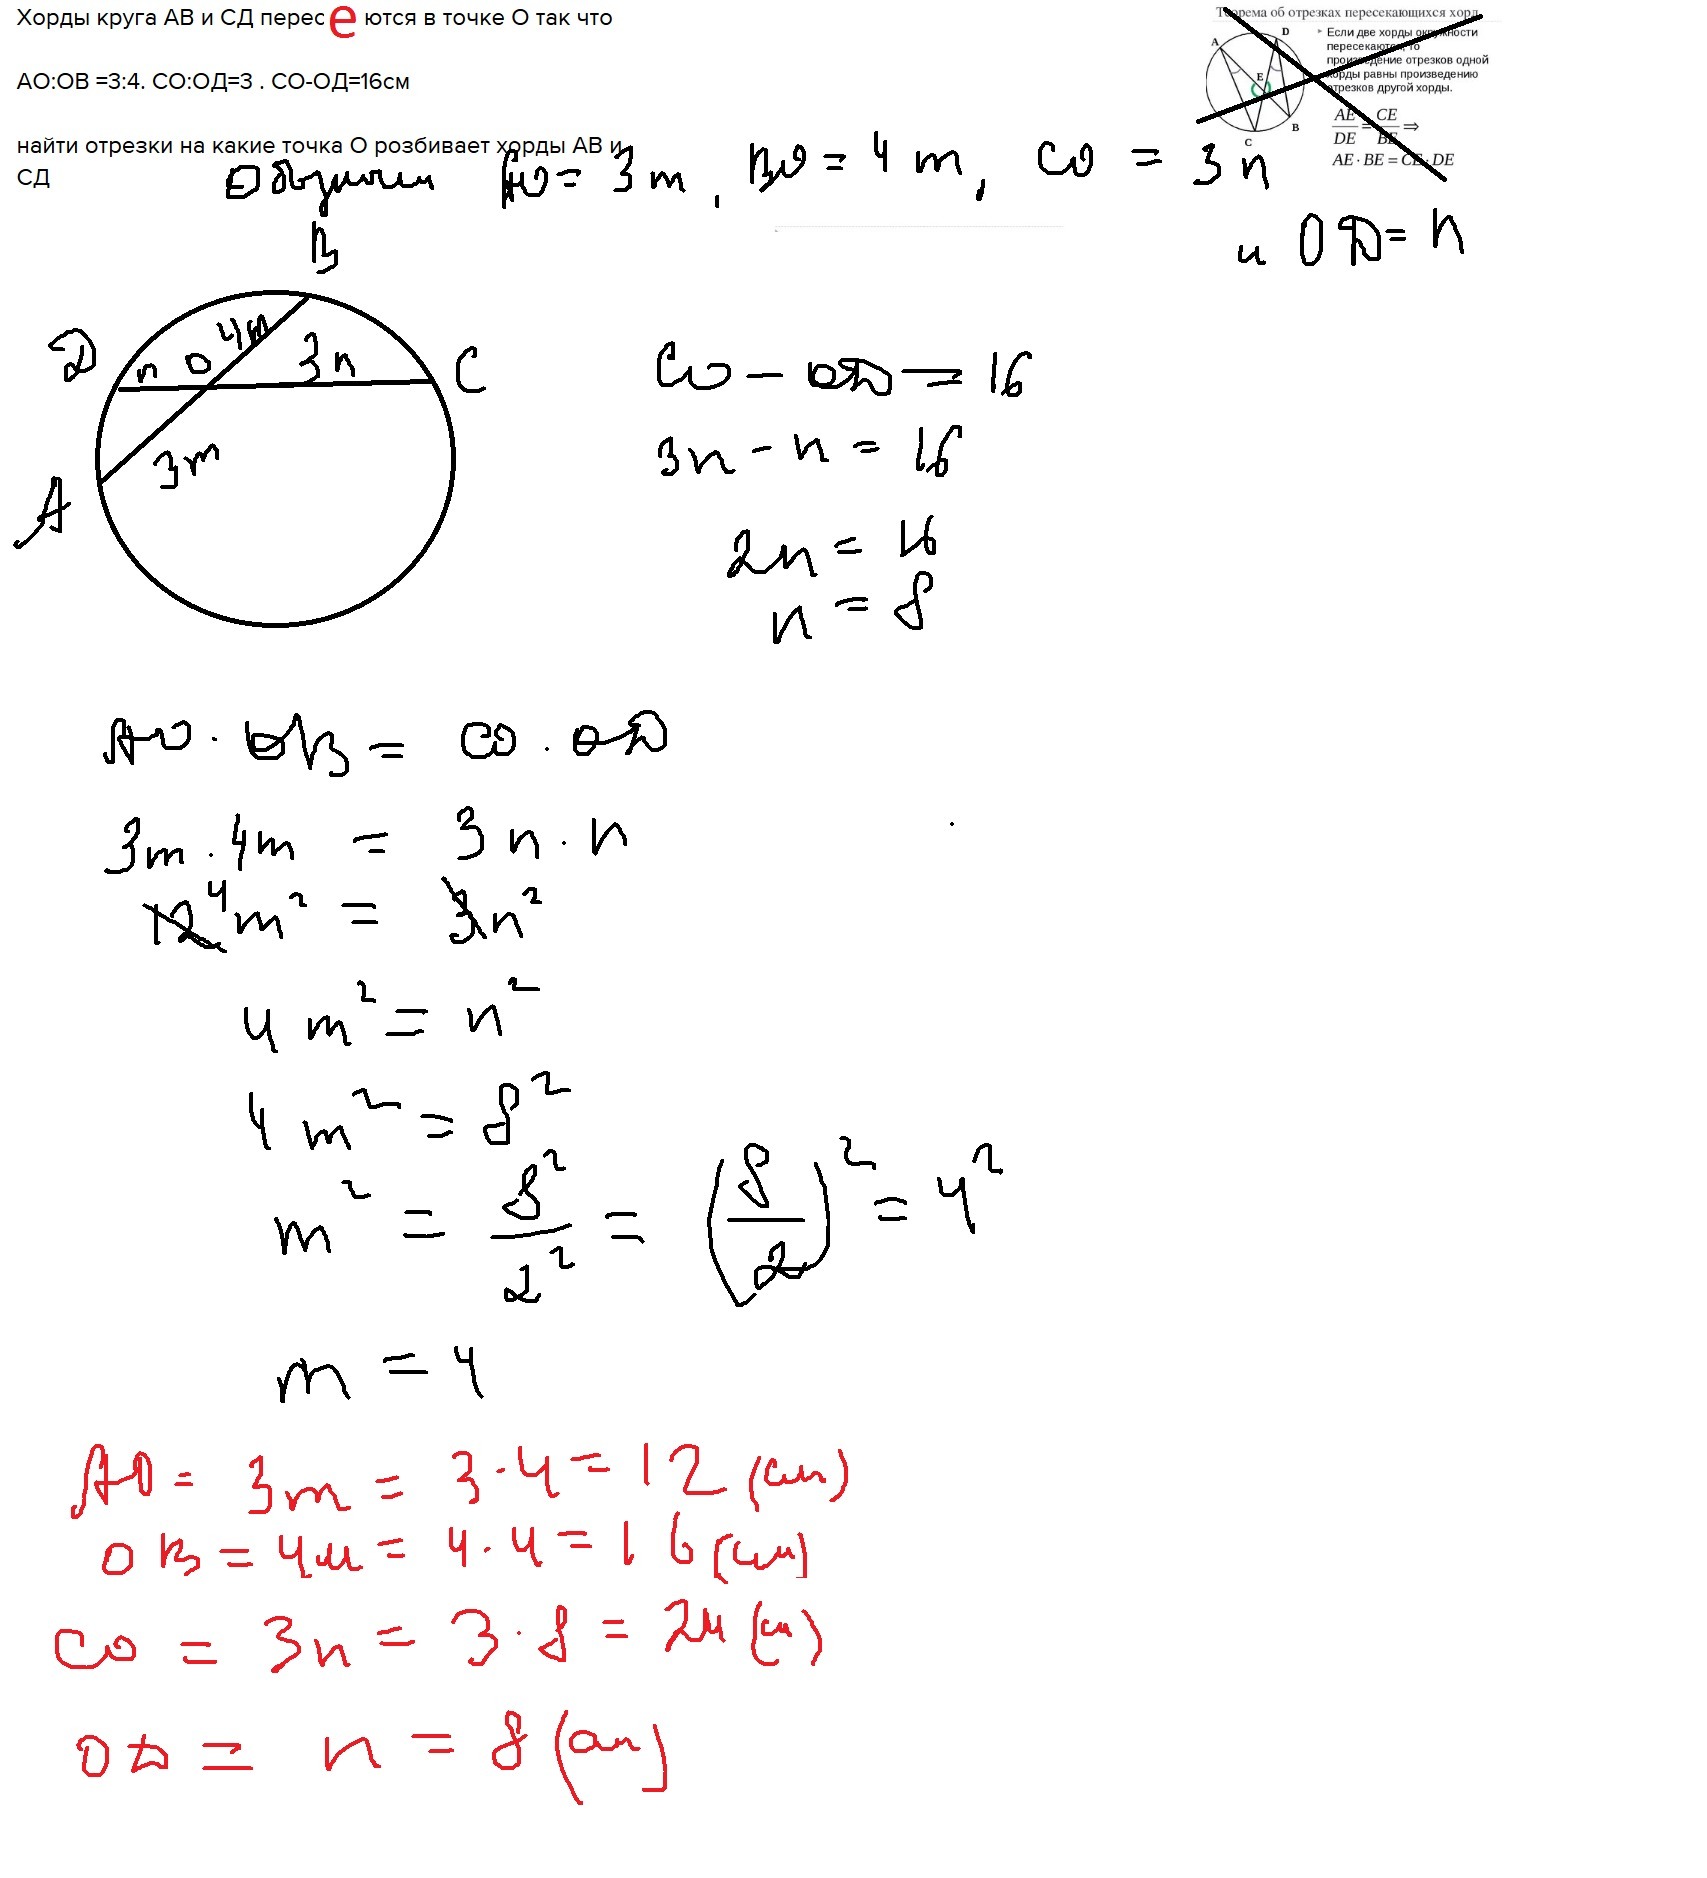 Хорды круга АВ и СД перес е ются в точке О так что
АО:ОВ =3:4. СО:ОД=3 . СО-ОД=16см
найти отрезки на какие точка О розбивает хорды АВ и
СД
Теорема об отрезках пересекающихся хорд
Если две хорды окружности
пересекаются, то
произведение отрезков одной
хорды равны произведению
отрезков другой хорды.
A
D
E
B
C
AE/DE = CE/BE ⇒
AE · BE = CE · DE
АО = 3m, ВО = 4m, СО = 3n
и ОД = n
В
Д
n
О
4m
3n
С
3m
А
СО – ОД = 16
3n – n = 16
2n = 16
n = 8
АО · ОВ = СО · ОД
3m · 4m = 3n · n
12 4 m² = 3n²
4m² = n²
4m² = 8²
m² = 8²/2² = (8/2)² = 4²
m = 4
АО = 3m = 3·4 = 12 (см)
ОВ = 4m = 4·4 = 16 (см)
СО = 3n = 3·8 = 24 (см)
ОД = n = 8 (см)